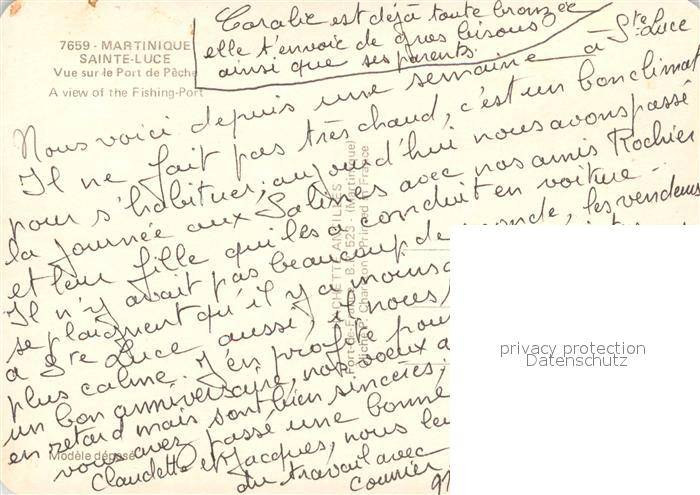 Coralie est déjà toute bronzée
elle t'envoie de gros bisous
ainsi que ses parents.
7659 - MARTINIQUE
SAINTE-LUCE
Vue sur le Port de Pêche
A view of the Fishing-Port
Nous voici depuis une semaine à Ste Luce
Il ne fait pas très chaud, c'est un bon climat
pour s'habituer, aujourd'hui nous avons passé
la journée aux Salines avec nos amis Rochier
et leur fille qui les a conduit en voiture -
Il n'y avait pas beaucoup de monde, les vendeurs
se plaignent qu'il y a moins
à Ste Luce aussi, il nous
plus calme. J'en profite pour
un bon anniversaire, nos voeux
en retard mais sont bien sincères,
vous avez passé une bonne
Claudette et Jacques, nous
du travail avec
courrier
Modèle déposé
Port-de-France B.P. 523 (Martinique)
Printed in France
privacy protection
Datenschutz